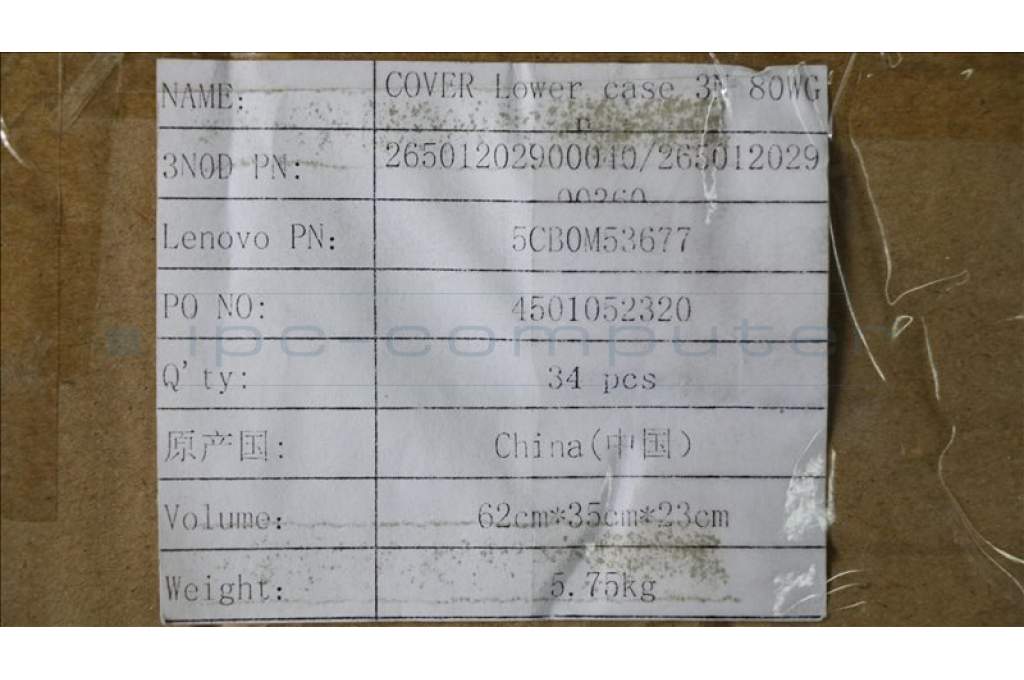 NAME: COVER Lower case 3N 80WG
3NOD PN: 26501202900040/265012029
00260
Lenovo PN: 5CB0M53677
PO NO: 4501052320
Q'ty: 34 pcs
原产国: China(中国)
Volume: 62cm*35cm*23cm
Weight: 5.75kg
ipc-computer